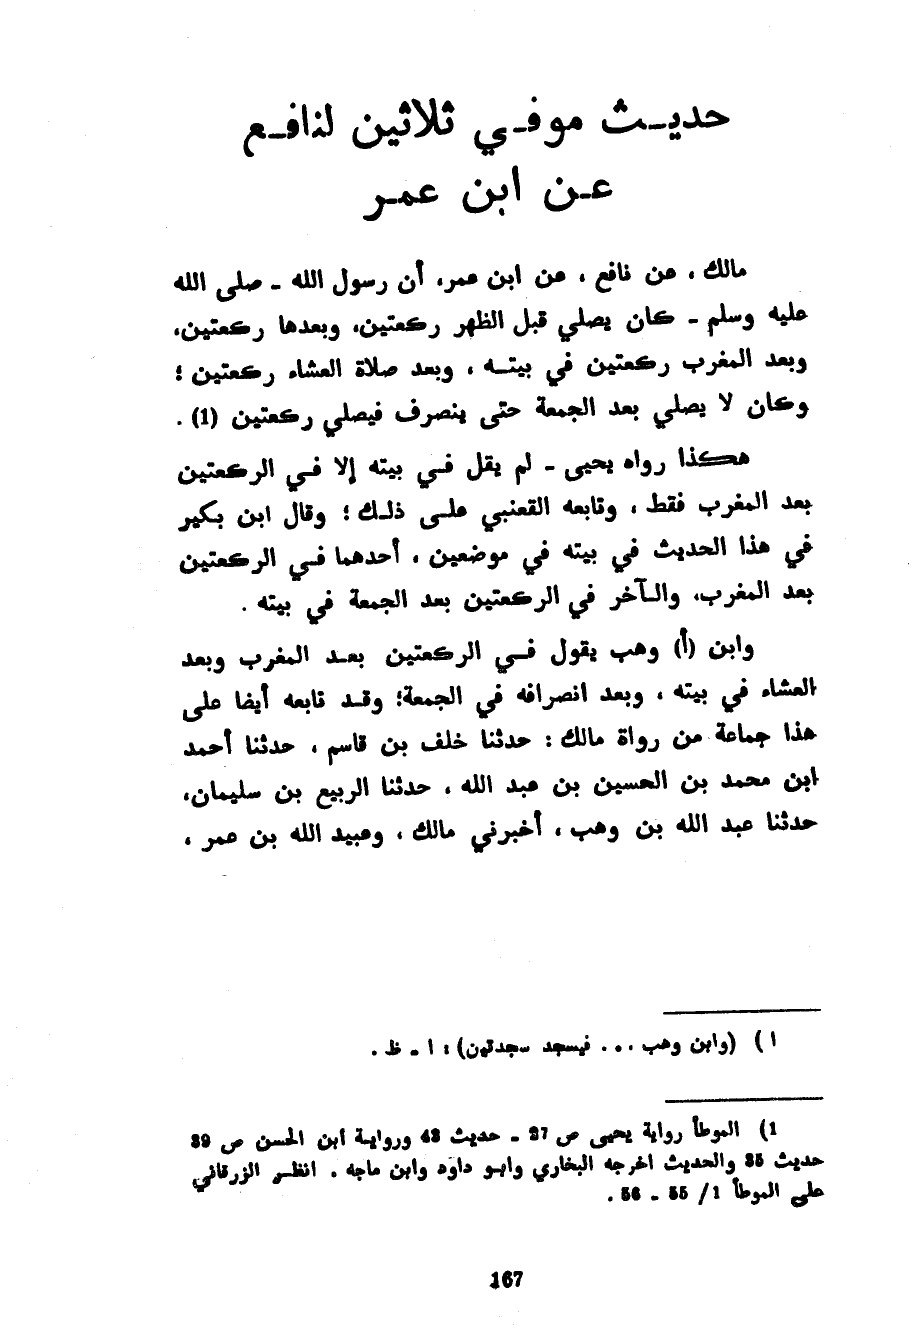 حديث موفي ثلاثين لنافع
عن ابن عمر
مالك ، عن نافع ، عن ابن عمر، أن رسول الله ـ صلى الله
عليه وسلم ـ كان يصلي قبل الظهر ركعتين، وبعدها ركعتين،
وبعد المغرب ركعتين في بيته ، وبعد صلاة العشاء ركعتين ؛
وكان لا يصلي بعد الجمعة حتى ينصرف فيصلي ركعتين (1) .
هكذا رواه يحيى ـ لم يقل في بيته إلا في الركعتين
بعد المغرب فقط ، وتابعه القعنبي على ذلك ؛ وقال ابن بكير
في هذا الحديث في بيته في موضعين ، أحدهما في الركعتين
بعد المغرب، والآخر في الركعتين بعد الجمعة في بيته .
وابن (أ) وهب يقول في الركعتين بعد المغرب وبعد
العشاء في بيته ، وبعد انصرافه في الجمعة؛ وقد تابعه أيضا على
هذا جماعة من رواة مالك : حدثنا خلف بن قاسم ، حدثنا أحمد
ابن محمد بن الحسين بن عبد الله ، حدثنا الربيع بن سليمان،
حدثنا عبد الله بن وهب ، أخبرني مالك ، وعبيد الله بن عمر ،
ا ) (وابن وهب ... فيسجد سجدتين) : ا ـ ظ .
1) الموطأ رواية يحيى ص 97 ـ حديث 43 ورواية ابن الحسن ص 89
حديث 35 والحديث اخرجه البخاري وابو داود وابن ماجه . انظر الزرقاني
على الموطأ 1/ 55 ـ 56 .
167